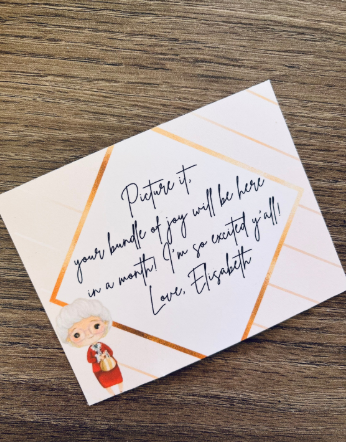 Picture it,
your bundle of joy will be here
in a month! I'm so excited y'all!
Love, Elisabeth